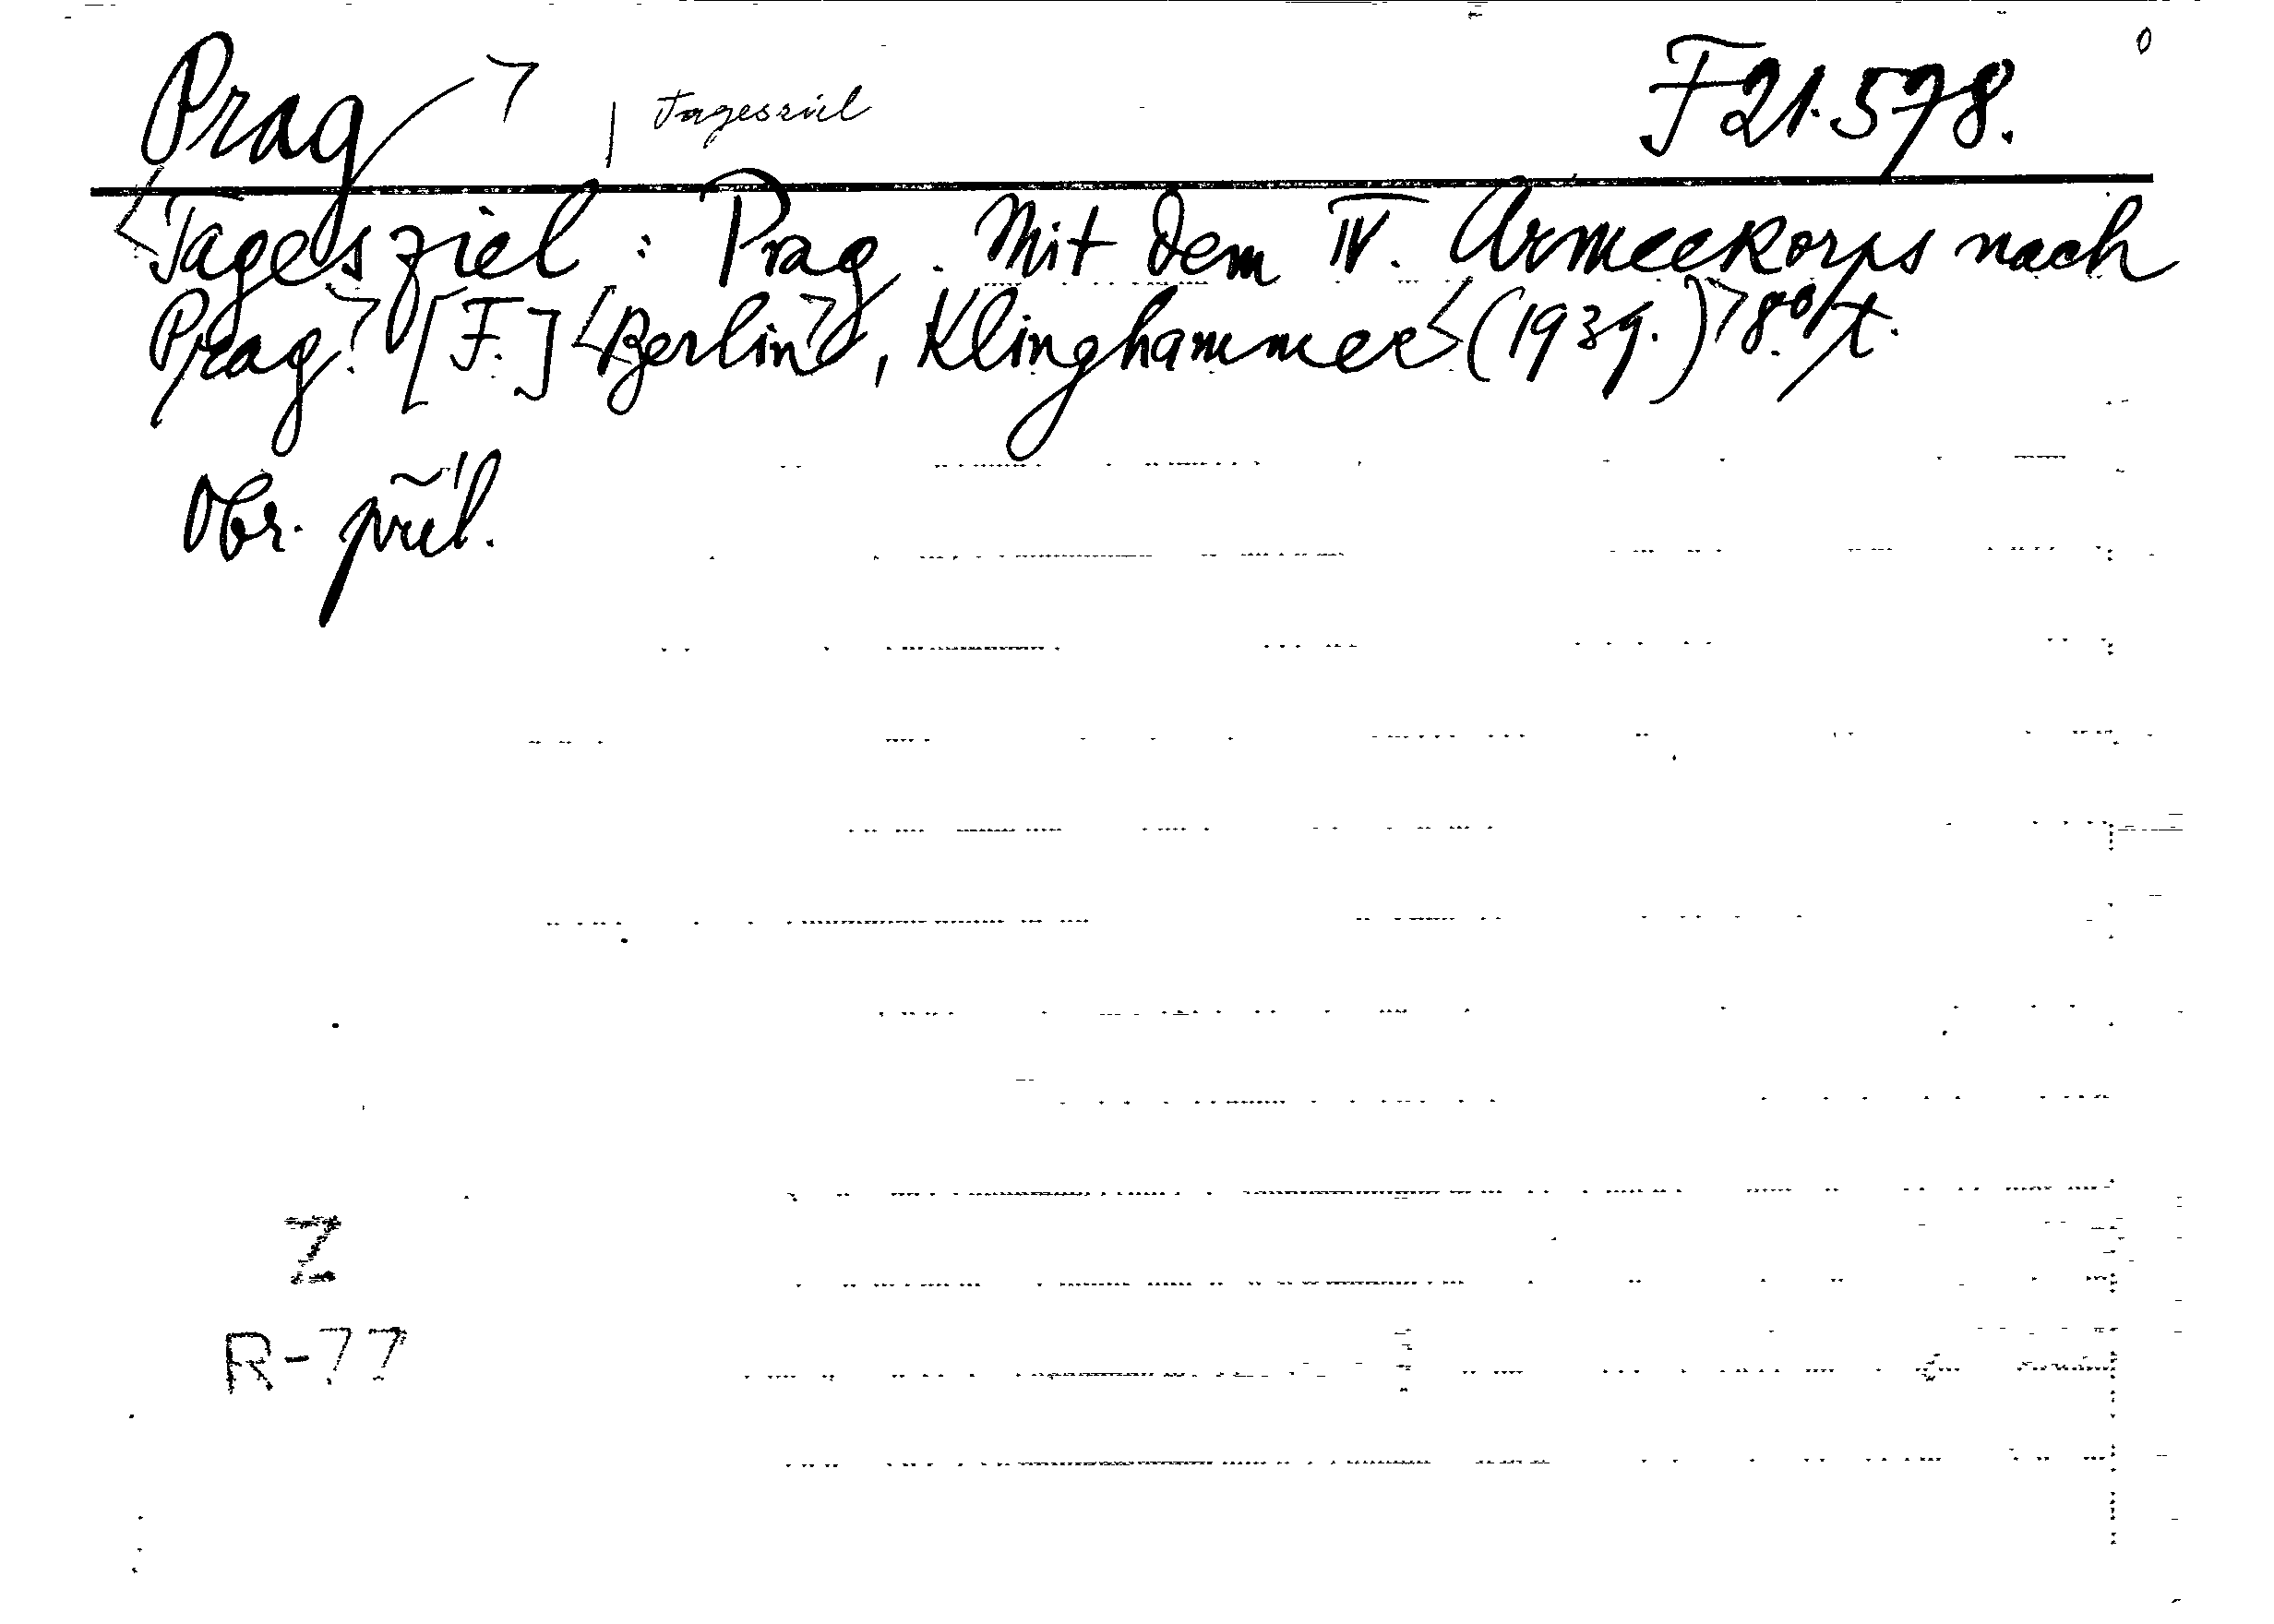 Prag ⟩ | Tagesziel F 21.578.
⟨Tagesziel: Prag. Mit dem IV. Armeekorps nach
Prag.⟩ [F.] ⟨Berlin⟩, Klinghammer ⟨(1939.)⟩ 8°. / t.
Obr. příl.
Z
R-77